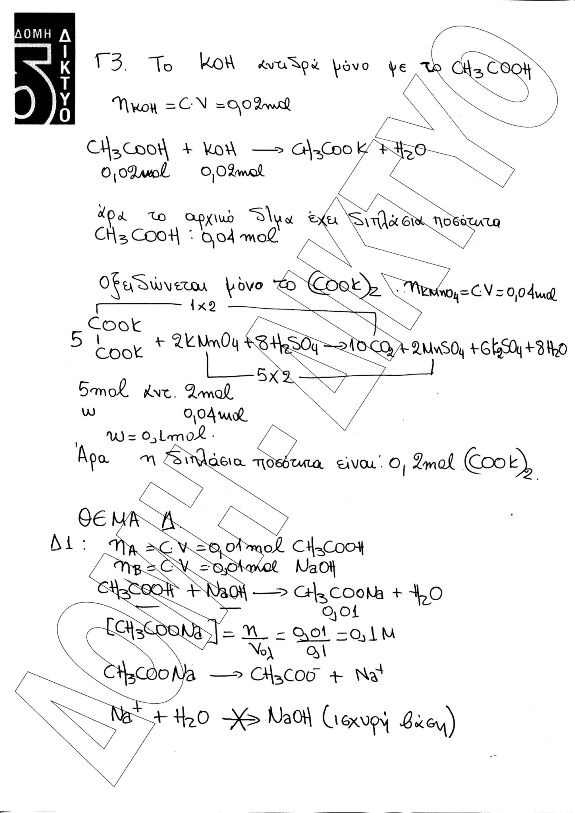 ΔΟΜΗ
ΔΙΚΤΥΟ
5
Γ3. Το KOH αντιδρά μόνο με το CH3COOH
nKOH = C·V = 0,02mol
CH3COOH + KOH → CH3COOK + H2O
0,02mol 0,02mol
άρα το αρχικό δ/μα έχει διπλάσια ποσότητα
CH3COOH : 0,04mol
Οξειδώνεται μόνο το (COOK)2 . nKMnO4 = C·V = 0,04mol
1x2
5 COOK
COOK + 2KMnO4 + 8H2SO4 → 10CO2 + 2MnSO4 + 6K2SO4 + 8H2O
5x2
5mol αντ. 2mol
ω 0,04mol
ω = 0,1mol.
Άρα η διπλάσια ποσότητα είναι: 0,2mol (COOK)2.
ΘΕΜΑ Δ
Δ1 : nA = C·V = 0,01mol CH3COOH
nB = C·V = 0,01mol NaOH
CH3COOH + NaOH → CH3COONa + H2O
0,01
[CH3COONa] = n/Vολ = 0,01/0,1 = 0,1M
CH3COONa → CH3COO- + Na+
Na+ + H2O ↛ NaOH (ισχυρή βάση)
ΔΟΜΗ - ΔΙΚΤΥΟ